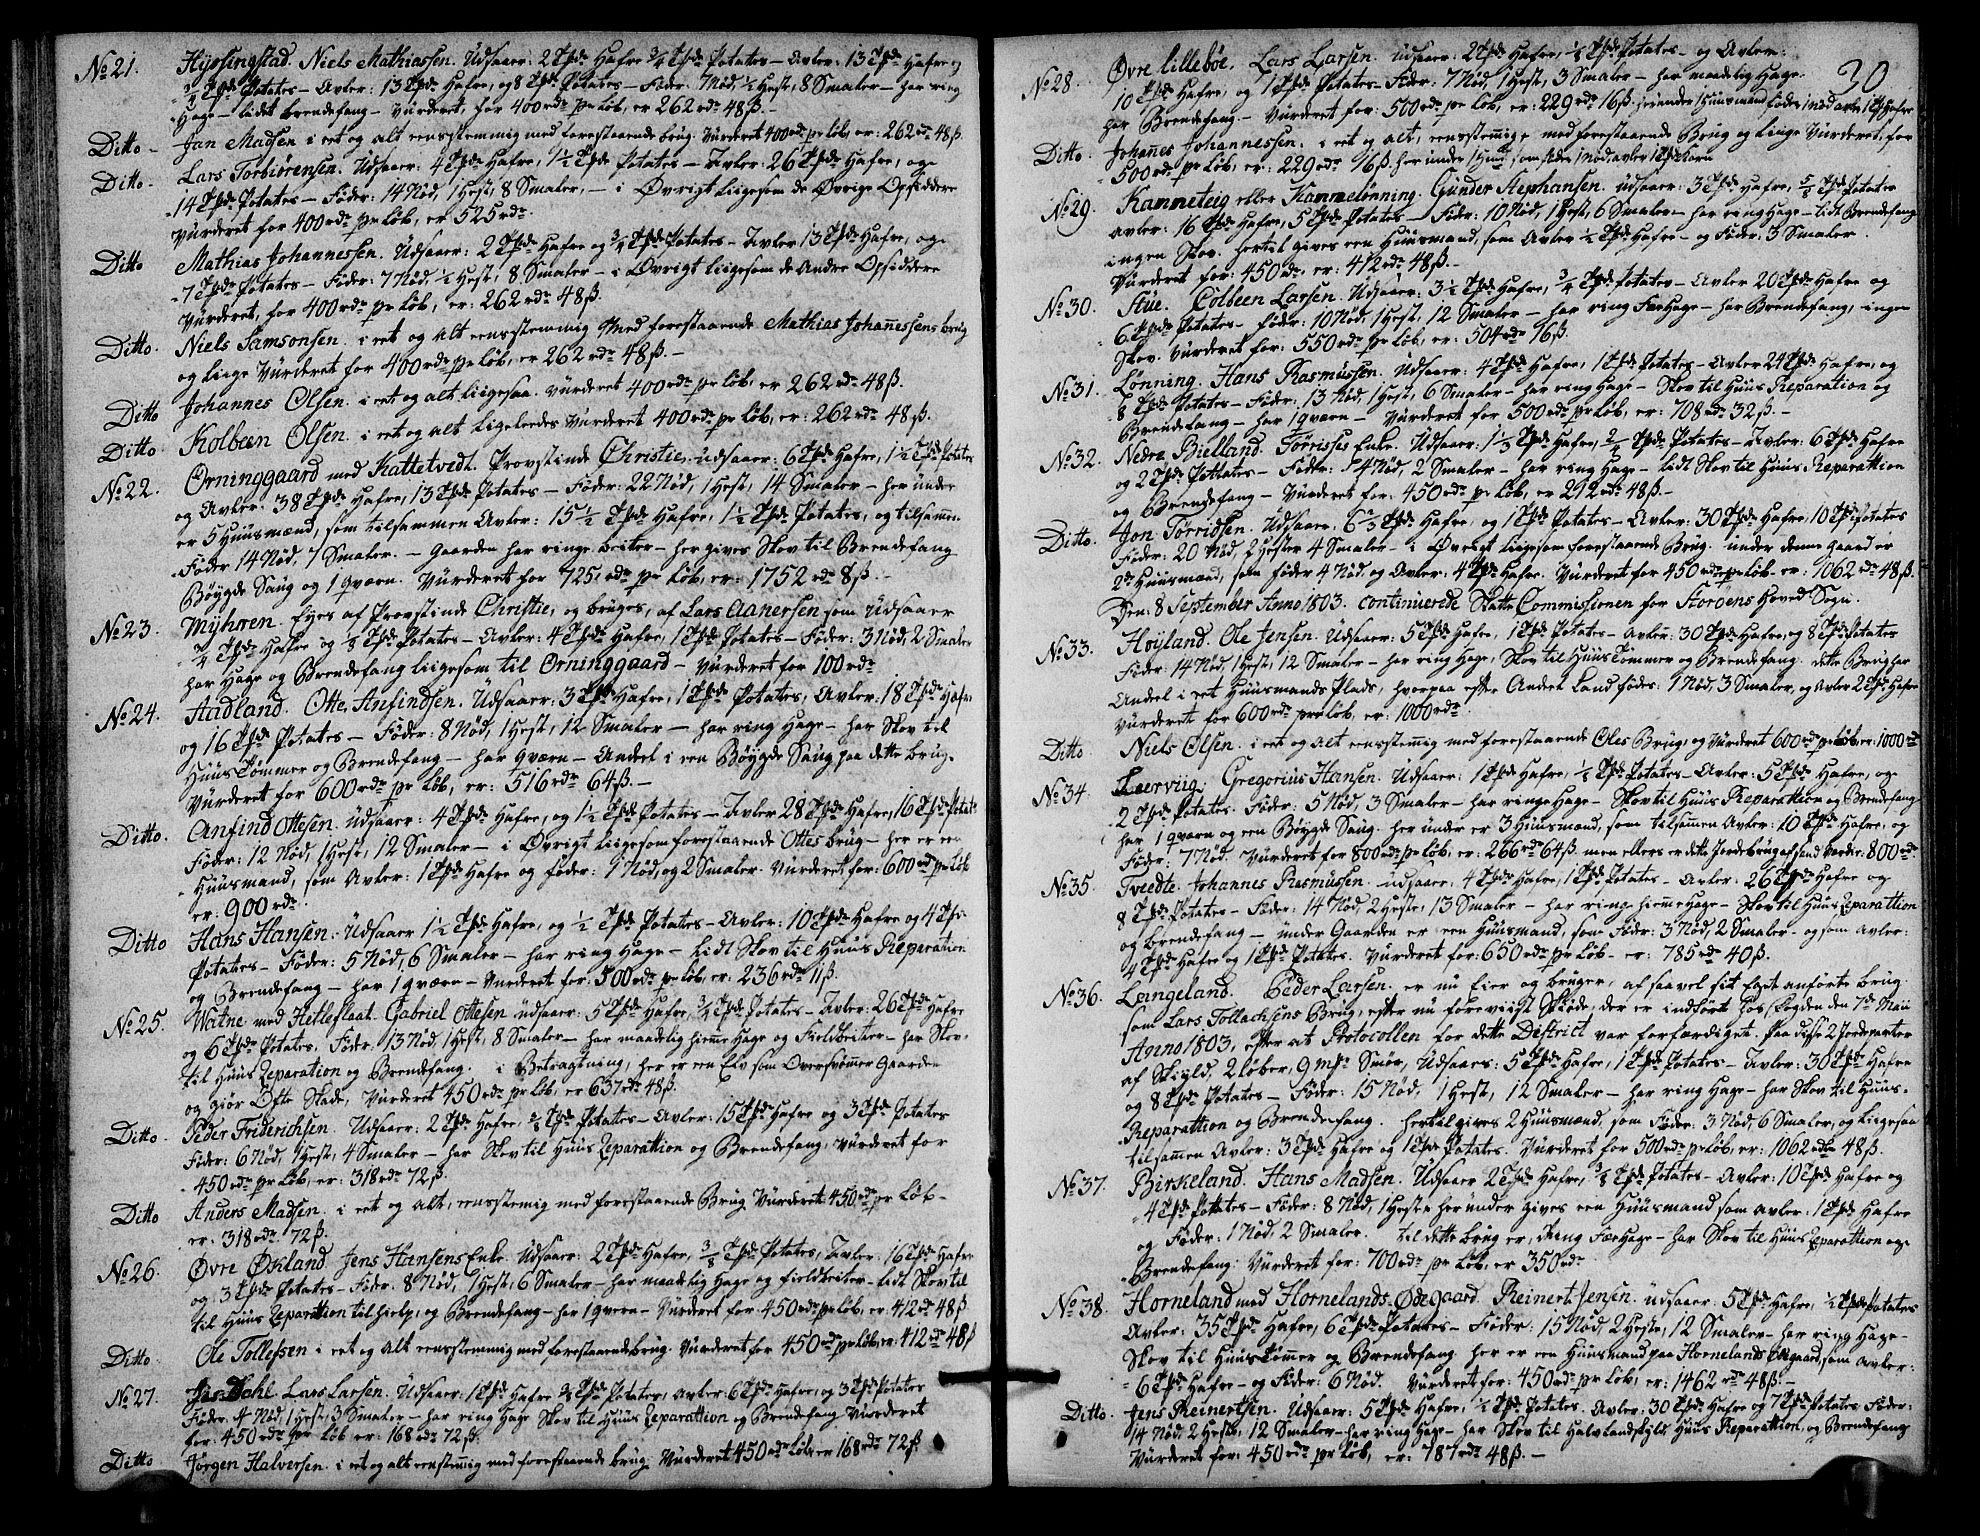 No 21. Hÿstingstad. Niels Mathiassen. Udsaaer: 2 Tde Hafre 3/4 Tde Potates – Avler: 13 Tde Hafre og
Tde Potates – Avler: 13 Tde Hafre, og 8 Tde Potates – Føder: 7 Nød, 1/2 Hest, 8 Smaler – har ring
Hage – lidet brendefang – Vurderet, for 400 rdr pr Løb, er 262 rdr 48 ß. –
Ditto – Jan Madsen i eet og alt eensstemmig med forestaaende brug. Vurderet 400 rdr pr Løb, er: 262 rdr 48 ß.
Ditto. Lars Torbiørensen. Udsaaer: 4 Tde Hafre, 1 1/2 Tde Potates – Avler: 26 Tde Hafre, og
14 Tde Potates – Føder: 14 Nød, 1 Hest, 8 Smaler, – i Øvrigt liigesom de Øvrige Opsiddere
Vurderet for 400 rdr pr Løb, er 525 rdr.
Ditto Mathias Johannessen. Udsaaer: 2 Tde Hafre og 3/4 Tde Potates – Avler 13 Tde Hafre, og
7 Tde Potates – Føder: 7 Nød, 1/2 Hest, 8 Smaler – i Øvrigt liigesom de Andre Opsiddere
Vurderet, for 400 rdr pr Løb, er: 262 rdr 48 ß.
Ditto. Niels Samsonsen. i eet og alt eensstemmig med forestaaende Mathias Johannessens brug
og liige Vurderet for 400 rdr pr Løb, er 262 rdr 48 ß. –
Ditto Johannes Olsen. i eet og alt liigesaa. Vurderet 400 rdr pr Løb, er 262 rdr 48 ß.
Ditto. Kolbeen Olsen. i eet og alt ligeledes Vurderet 400 rdr pr Løb, er: 262 rdr 48 ß.
No 22. Orninggaard med Kattetvedt. Provstinde Christie. udsaaer: 6 Tde Hafre, 1 1/2 Tde Potates
og Avler: 38 Tde Hafre, 13 Tde Potates – Føder: 22 Nød, 1 Hest, 14 Smaler – her under
er 5 Huusmænd, som tilsammen Avler: 15 1/2 Tde Hafre, 1 1/2 Tde Potates, og tilsammen
Føder 14 Nød, 7 Smaler. – Gaarden har ringe beiter – her gives Skov til Brendefang
Bøygde Saug og 1 qværn. Vurderet for 725 rdr pr Løb, er: 1752 rdr 8 ß. –
No 23. Mÿhren. Eyes af Provstinde Christie, og bruges, af Lars Aanersen som Udsaaer
3/4 Tde Hafre og 1/8 Tde Potates – Avler: 4 Tde Hafre, 1 Tde Potates – Føder: 3 Nød, 2 Smaler
har Hage og Brendefang liigesom til Orninggaard – Vurderet for 100 rdr
No 24. Aadland. Otte Anfindsen. Udsaaer: 3 Tde Hafre, 1 Tde Potates, Avler: 18 Tde Hafre
og 16 Tde Potates – Føder: 8 Nød, 1 Hest, 12 Smaler – har ring Hage – har Skov til
Huus Tømmer og Brendefang – har qværn – Andeel i een Bøygde Saug paa dette brug.
Vurderet for 600 rdr pr Løb, er: 516 rdr 64 ß. –
Ditto. Anfind Ottesen. Udsaaer: 4 Tde Hafre, og 1 1/2 Tde Potates – Avler 28 Tde Hafre, 16 Tde Potates
Føder: 12 Nød, 1 Hest, 12 Smaler – i Øvrigt liigesom forestaaende Ottes brug – her er een
Huusmand, som Avler: 1 Tde Hafre og føder: 1 Nød, og 2 Smaler. Vurderet for: 600 rdr pr Løb
er: 900 rdr.
Ditto Hans Hansen. Udsaaer 1 1/2 Tde Hafre, og 1/2 Tde Potates – Avler: 10 Tde Hafre og 4 Tde
Potates – Føder: 5 Nød, 6 Smaler – har ring Hage – Lidt Skov til Huus Reparation
og Brendefang – har 1 qværn – Vurderet for 500 rdr pr Løb, er: 236 rdr 11 ß.
No 25. Watne med Hetleflaat. Gabriel Ottesen udsaaer: 5 Tde Hafre, 3/4 Tde Potates – Avler: 26 Tde Hafre
og 6 Tde Potates. Føder: 13 Nød, 1 Hest, 8 Smaler – har maadelig hiemme Hage og Fieldbeiter – har Skov
til Huus Reparation og Brendefang. i Betragtning, her er een Elv som Oversvømmer Gaarden
og giør Ofte Skade, Vurderet 450 rdr pr Løb, er 637 rdr 48 ß.
Ditto. Peder Friderichsen. Udsaaer: 2 Tde Hafre, Tde Potates – Avler: 15 Tde Hafre og 3 Tde Potates
Føder: 6 Nød, 1 Hest, 4 Smaler – har Skov til Huus Reparattion og Brendefang, Vurderet for
450 rdr pr Løb, er: 318 rdr 72 ß.
Ditto Anders Madsen. i eet og alt, eensstemig med forestaaende Brug Vurderet 450 rdr pr Løb –
er: 318 rdr 72 ß.
No 26. Øvre Øhland Jens Hansens Enke. Udsaaer: 2 Tde Hafre, 3/8 Tde Potates, Avler: 16 Tde Hafre
og 3 Tde Potates – Føder: 8 Nød, 1 Hest, 6 Smaler – har maadelig Hage og fieldbeiter – lidt Skov til
til Huus Reparattion til hielp, og Brendefang – har 1 qvern – Vurderet for 450 rdr pr Løb, er: 412 rdr 48 ß.
Ditto. Ole Tollefsen i eet og alt eensstemmig med forestaaende brug. Vurderet for 450 rdr pr Løb er: 412 rdr 48 ß
No 27. Dahl Lars Larsen. Udsaaer: 1 Tde Hafre Tde Potates, Avler: 6 Tde Hafre, og 3 Tde Potates
Føder: 4 Nød, 1 Hest, 3 Smaler – har ring Hage Skov til Huus Reparattion og Brendefang Vurderet
for: 450 rdr pr Løb er: 168 rdr 72 ß.
Ditto Jørgen Halversen. i eet og alt eenstemig med forestaaende brug. Vurderet 450 rdr Løb er 168 rdr 72 ß.
30
No 28. Øvre Lillebøe. Lars Larsen. Udsaaer: 2 Tde Hafre, 1/2 Tde Potates – og Avler:
10 Tde Hafre, og 7 Tde Potates – Føder: 7 Nød, 1 Hest, 3 Smaler – har maadelig Hage.
har Brendefang – Vurderet for: 500 rdr pr Løb, er: 229 rdr 16 ß. herunder 1 Huusmand føder 1 Nød avler 1 Tde Hafre
Ditto. Johannes Johannessen. i eet og alt, eensstemig med forestaaende Brug og liige Vurderet, for
500 rdr pr Løb, er: 229 rdr 16 ß. her under 1 Huusmd som føder 1 Nød, avler 1 Tde Korn
No 29. Kammeteig eller Kammelønning Gunder Stephansen. udsaaer: 3 Tde Hafre, Tde Potates
avler: 16 Tde Hafre, 5 Tde Potates – Føder: 10 Nød, 1 Hest, 6 Smaler – har ring Hage – lidt Brendefang
ingen Skov. hertil gives een Huusmand, som Avler 1/2 Tde Hafre – og Føder: 3 Smaler.
Vurderet for: 450 rdr, er: 412 rdr 48 ß. –
No 30. Stue. Colbeen Larsen. Udsaaer: 3 1/2 Tde Hafre, 3/4 Tde Potates – Avler 20 Tde Hafre og
6 Tde Potates – Føder: 10 Nød, 1 Hest, 12 Smaler – har ring FæeHage – har Brendefang, ingen
Skov. Vurderet for: 550 rdr pr Løb, er: 504 rdr 16 ß.
No 31. Lønning. Hans Rasmussen. Udsaaer: 4 Tde Hafre, 1 Tde Potates – Avler 24 Tde Hafre, og
8 Tde Potates – Føder: 13 Nød, 1 Hest, 6 Smaler – har ring Hage – Skov til Huus Reparation og
Brendefang – har 1 qværn – Vurderet for 500 rdr pr Løb, er: 708 rdr 32 ß. –
No 32. Nedre Bielland. Tørisses Enke. Udsaaer: 1 1/2 Tde Hafre, Tde Potates – Avler: 6 Tde Hafre
og 2 Tde Pottates – Føder: 4 Nød, 2 Smaler – har ring Hage – lidt Skov til Huus Reparattion
og Brendefang – Vurderet for: 450 rdr pr Løb, er 212 rdr 48 ß. –
Ditto. Jon Tørridsen. Udsaaer: 6 Tde Hafre, og 1 Tde Potates – Avler: 30 Tde Hafre, 10 Tde Potates
Føder: 20 Nød, 2 Hester 4 Smaler – i Øvrigt liigesom forestaaende Brug. under denne gaard er
2de Huusmænd, som føder 4 Nød og Avler: 4 Tde Hafre. Vurderet for 450 rdr pr Løb – er: 1062 rdr 48 ß.
Den: 8 September Anno 1803. Continuerede Skatte Commissionen for Stordens Hoved Sogn.
No 33. Høÿland. Ole Jensen. Udsaaer: 5 Tde Hafre, 1 Tde Potates – Avler: 30 Tde Hafre, og 8 Tde Potates
Føder: 14 Nød, 1 Hest, 12 Smaler – har ring Hage, Skov til Huus Tømmer og Brendefang. dette Brug har
Andeel i eet Huusmands Plads, hvorpaa efter Andeel Land fødes: 1 Nød, 3 Smaler, og Avler 2 Tde Hafre
Vurderet for 600 rdr pr Løb, er: 1000 rdr.
Ditto Niels Olsen. i eet og alt eenstemig med forestaaende Oles Brug, og Vurderet 600 rdr pr Løb er: 1000 rdr
No 34. Leerviig. Gregorius Hansen. Udsaaer: 1 Tde Hafre, 1/2 Tde Potates – Avler: 5 Tde Hafre, og
2 Tde Potates. Føder: 5 Nød, 3 Smaler – har ringe Hage – Skov til Huus Reparattion og Brendefang
har 1 qværn og een Bøygde Saug. her under er 3 Huusmænd, som tilsamen Avler: 10 Tde Hafre, og
Føder: 7 Nød. Vurderet for 800 rdr pr Løb, er: 266 rdr 64 ß. men ellers er dette Jordebrug af Værdie: 800 rdr
No 35. Tveedte. Johannes Rasmussen. udsaaer: 4 Tde Hafre, 1 Tde Potates – Avler: 26 Tde Hafre og
8 Tde Potates – Føder: 14 Nød, 2 Heste, 13 Smaler – har ring hiemeHage – Skov til Huus Reparattion
og Brendefang – under Gaarden er een Huusmand, som Føder: 3 Nød, 2 Smaler – og som Avler:
4 Tde Hafre og 1 Tde Potates. Vurderet for: 650 rdr pr Løb – er: 785 rdr 40 ß.
No 36. Langeland. Peder Larsen. er nu Eier og bruger, af saavel sit Eget anførte brug
som Lars Tollachsens Brug, efter nu foreviist Skiøde, der er indført hos Fogden den 7de Maii
Anno 1803, efter at Protocollen for dette District var forfærdiget. paa disse 2 Jordeparter
af Skyld. 2 Løber, 9 mp Smør, Udsaaes: 5 Tde Hafre, 1 Tde Potates – Avler: 30 Tde Hafre
og 8 Tde Potates – Føder: 15 Nød, 1 Hest, 12 Smaler – har ring Hage – har Skov til Huus
Reparattion og Brendefang. hertil gives 2 Huusmænd, som Føder: 3 Nød, 6 Smaler, og liigesaa
tilsamen Avler: 3 Tde Hafre og 1 Tde Potates. Vurderet for 500 rdr pr Løb, er: 1062 rdr 48 ß.
No 37. Birkeland. Hans Madsen. Udsaaer 2 Tde Hafre, Tde Potates – Avler: 10 Tde Hafre og
4 Tde Pottates – Føder: 8 Nød, 1 Hest – her under gives een Huusmand som avler: 1 Tde Hafre
og Føder: 1 Nød, 2 Smaler. til dette brug er, ring FæeHage – har Skov til Huus Reparattion og
Brendefang: Vurderet for: 700 rdr pr Løb, er 350 rdr
No 38. Horneland med Hornelands Ødegaard. Reinert Jensen. udsaaer: 5 Tde Hafre, 1/2 Tde Potates
Avler: 35 Tde Hafre, 6 Tde Potates – Føder: 15 Nød, 2 Heste, 12 Smaler – har ring Hage –
Skov til Huus Tømer og Brendefang. her er een Huusmand paa Hornelands Ødegaard, som avler:
6 Tde Hafre – og Føder: 6 Nød. Vurderet for: 450 rdr pr Løb, er: 1462 rdr 48 ß. –
Ditto. Jens Reinertsen. Udsaaer: 5 Tde Hafre, 1/2 Tde Potates. Avler: 30 Tde Hafre og 7 Tde Potates Føder:
14 Nød, 2 Heste, 12 Smaler – har ring Hage – har Skov til Huus Reparattion, og Brendefang
Vurderet for: 450 rdr pr Løb, er: 787 rdr 48 ß. –